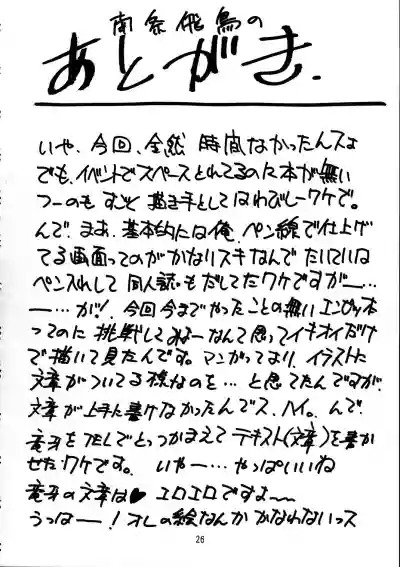 南条飛鳥の
あとがき.
いや、今回、全然 時間なかったんスよ
でも、イベントでスペースとれてるのに本が無い
つーのも すごく 描き手としてはわびしーワケで。
んで、まあ、基本的には俺、ペン線で仕上げ
てる画面ってのがかなりスキなんで たいていは
ペン入れして 同人誌もだしてたワケですがー…
ー…が!、今回今までやったことの無いエンピツ本
ってのに 挑戦してみよーなんて思ってイキオイだけ
で描いて見たんです。マンガってより、イラストに
文章がついてる様なのを…と思てたんですが、
文章が上手に書けなかったんでス、ハイ。んで、
竜牙をTELでとっつかまえて テキスト(文章)を書か
せたワケです。 いやー…やっぱいいね
竜牙の文章は♥ エロエロですよ〜〜
うっはー!オレの絵なんか かなわないっス
26